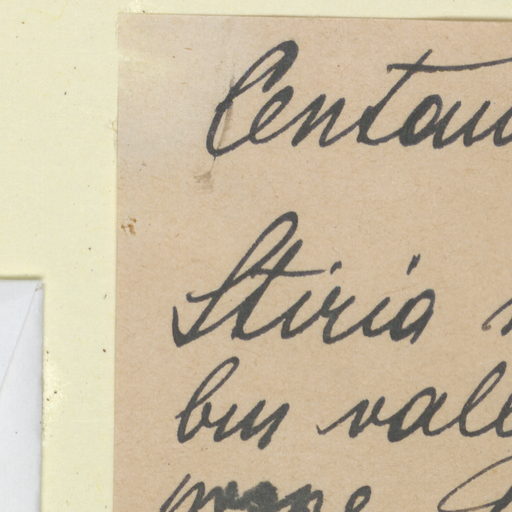 Centau
Stiria
bus vall
prope